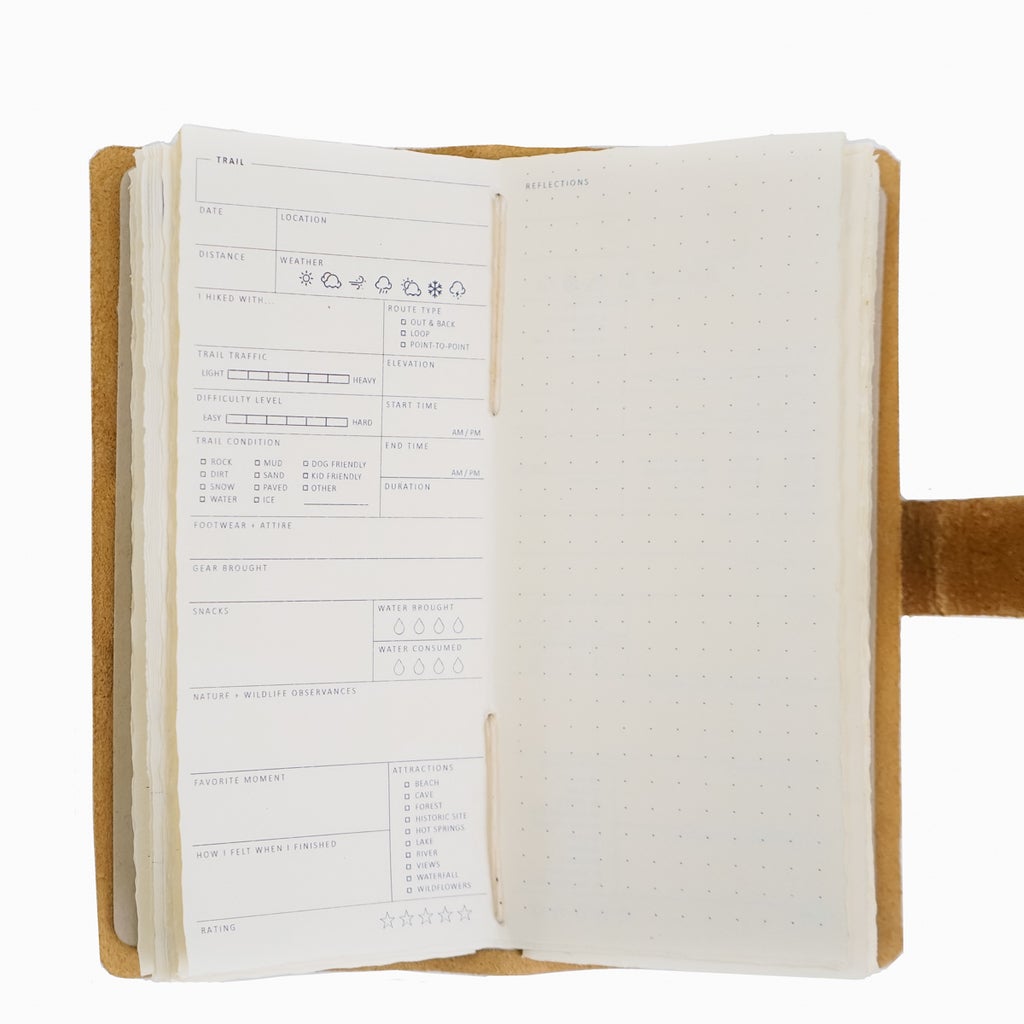 TRAIL
DATE
LOCATION
DISTANCE
WEATHER
I HIKED WITH...
ROUTE TYPE
OUT & BACK
LOOP
POINT-TO-POINT
TRAIL TRAFFIC
LIGHT HEAVY
ELEVATION
DIFFICULTY LEVEL
EASY HARD
START TIME
AM / PM
TRAIL CONDITION
ROCK MUD DOG FRIENDLY
DIRT SAND KID FRIENDLY
SNOW PAVED OTHER
WATER ICE
END TIME
AM / PM
DURATION
FOOTWEAR + ATTIRE
GEAR BROUGHT
SNACKS
WATER BROUGHT
WATER CONSUMED
NATURE + WILDLIFE OBSERVANCES
FAVORITE MOMENT
ATTRACTIONS
BEACH
CAVE
FOREST
HISTORIC SITE
HOT SPRINGS
LAKE
RIVER
VIEWS
WATERFALL
WILDFLOWERS
HOW I FELT WHEN I FINISHED
RATING
REFLECTIONS